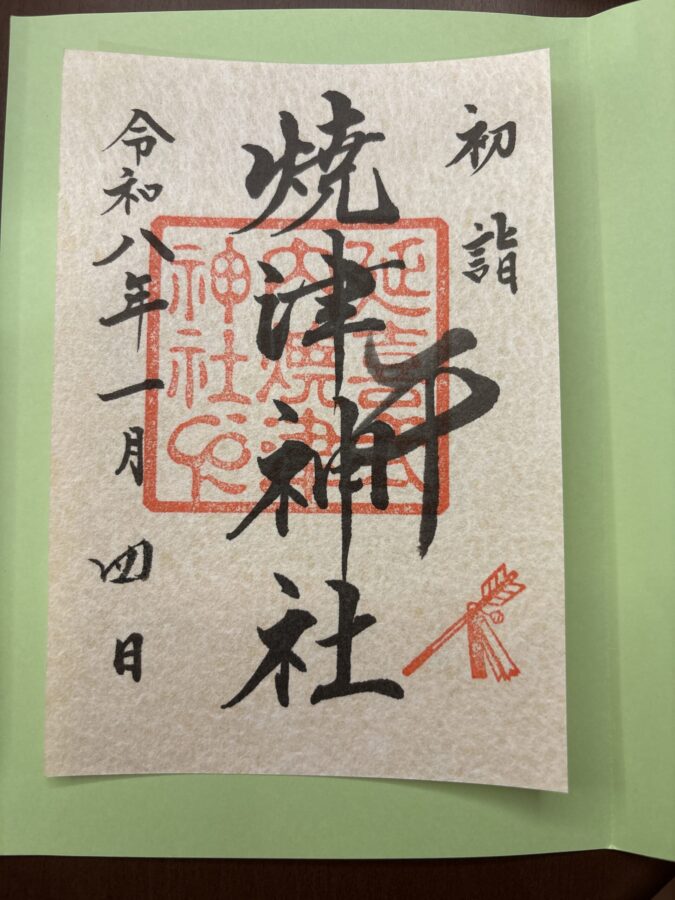 初詣
午
焼津神社
令和八年一月四日
延喜式
内焼津
神社印